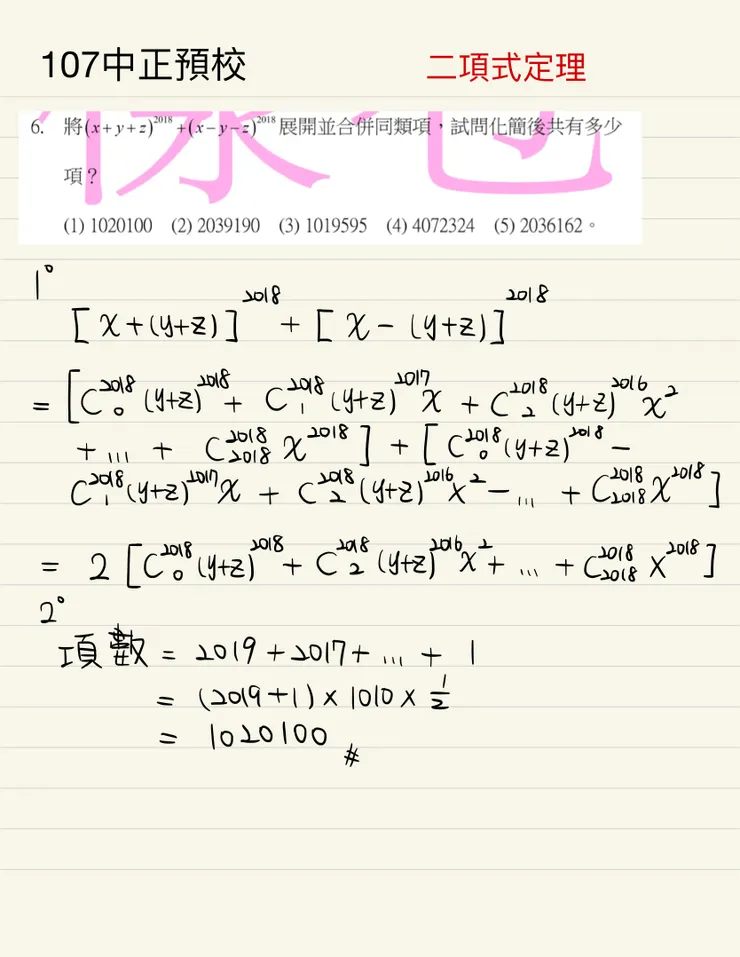 107中正預校
二項式定理
6. 將(x+y+z)^2018+(x-y-z)^2018展開並合併同類項，試問化簡後共有多少
項？
(1) 1020100 (2) 2039190 (3) 1019595 (4) 4072324 (5) 2036162。
1°
[x+(y+z)]^2018 + [x-(y+z)]^2018
= [C^2018_0 (y+z)^2018 + C^2018_1 (y+z)^2017 x + C^2018_2 (y+z)^2016 x^2
+ ... + C^2018_2018 x^2018] + [C^2018_0 (y+z)^2018 -
C^2018_1 (y+z)^2017 x + C^2018_2 (y+z)^2016 x^2 - ... + C^2018_2018 x^2018]
= 2 [C^2018_0 (y+z)^2018 + C^2018_2 (y+z)^2016 x^2 + ... + C^2018_2018 x^2018]
2°
項數 = 2019 + 2017 + ... + 1
= (2019+1) × 1010 × 1/2
= 1020100 #